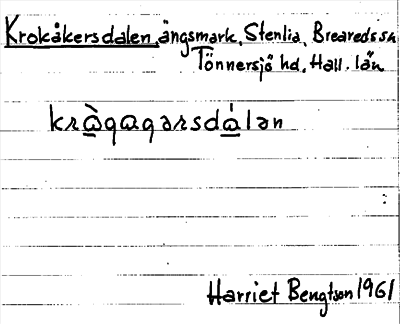 Krokåkersdalen, ängsmark, Stenlia, Breareds sn
Tönnersjö hd, Hall. län
kràqaqərsdálən
Harriet Bengtson 1961